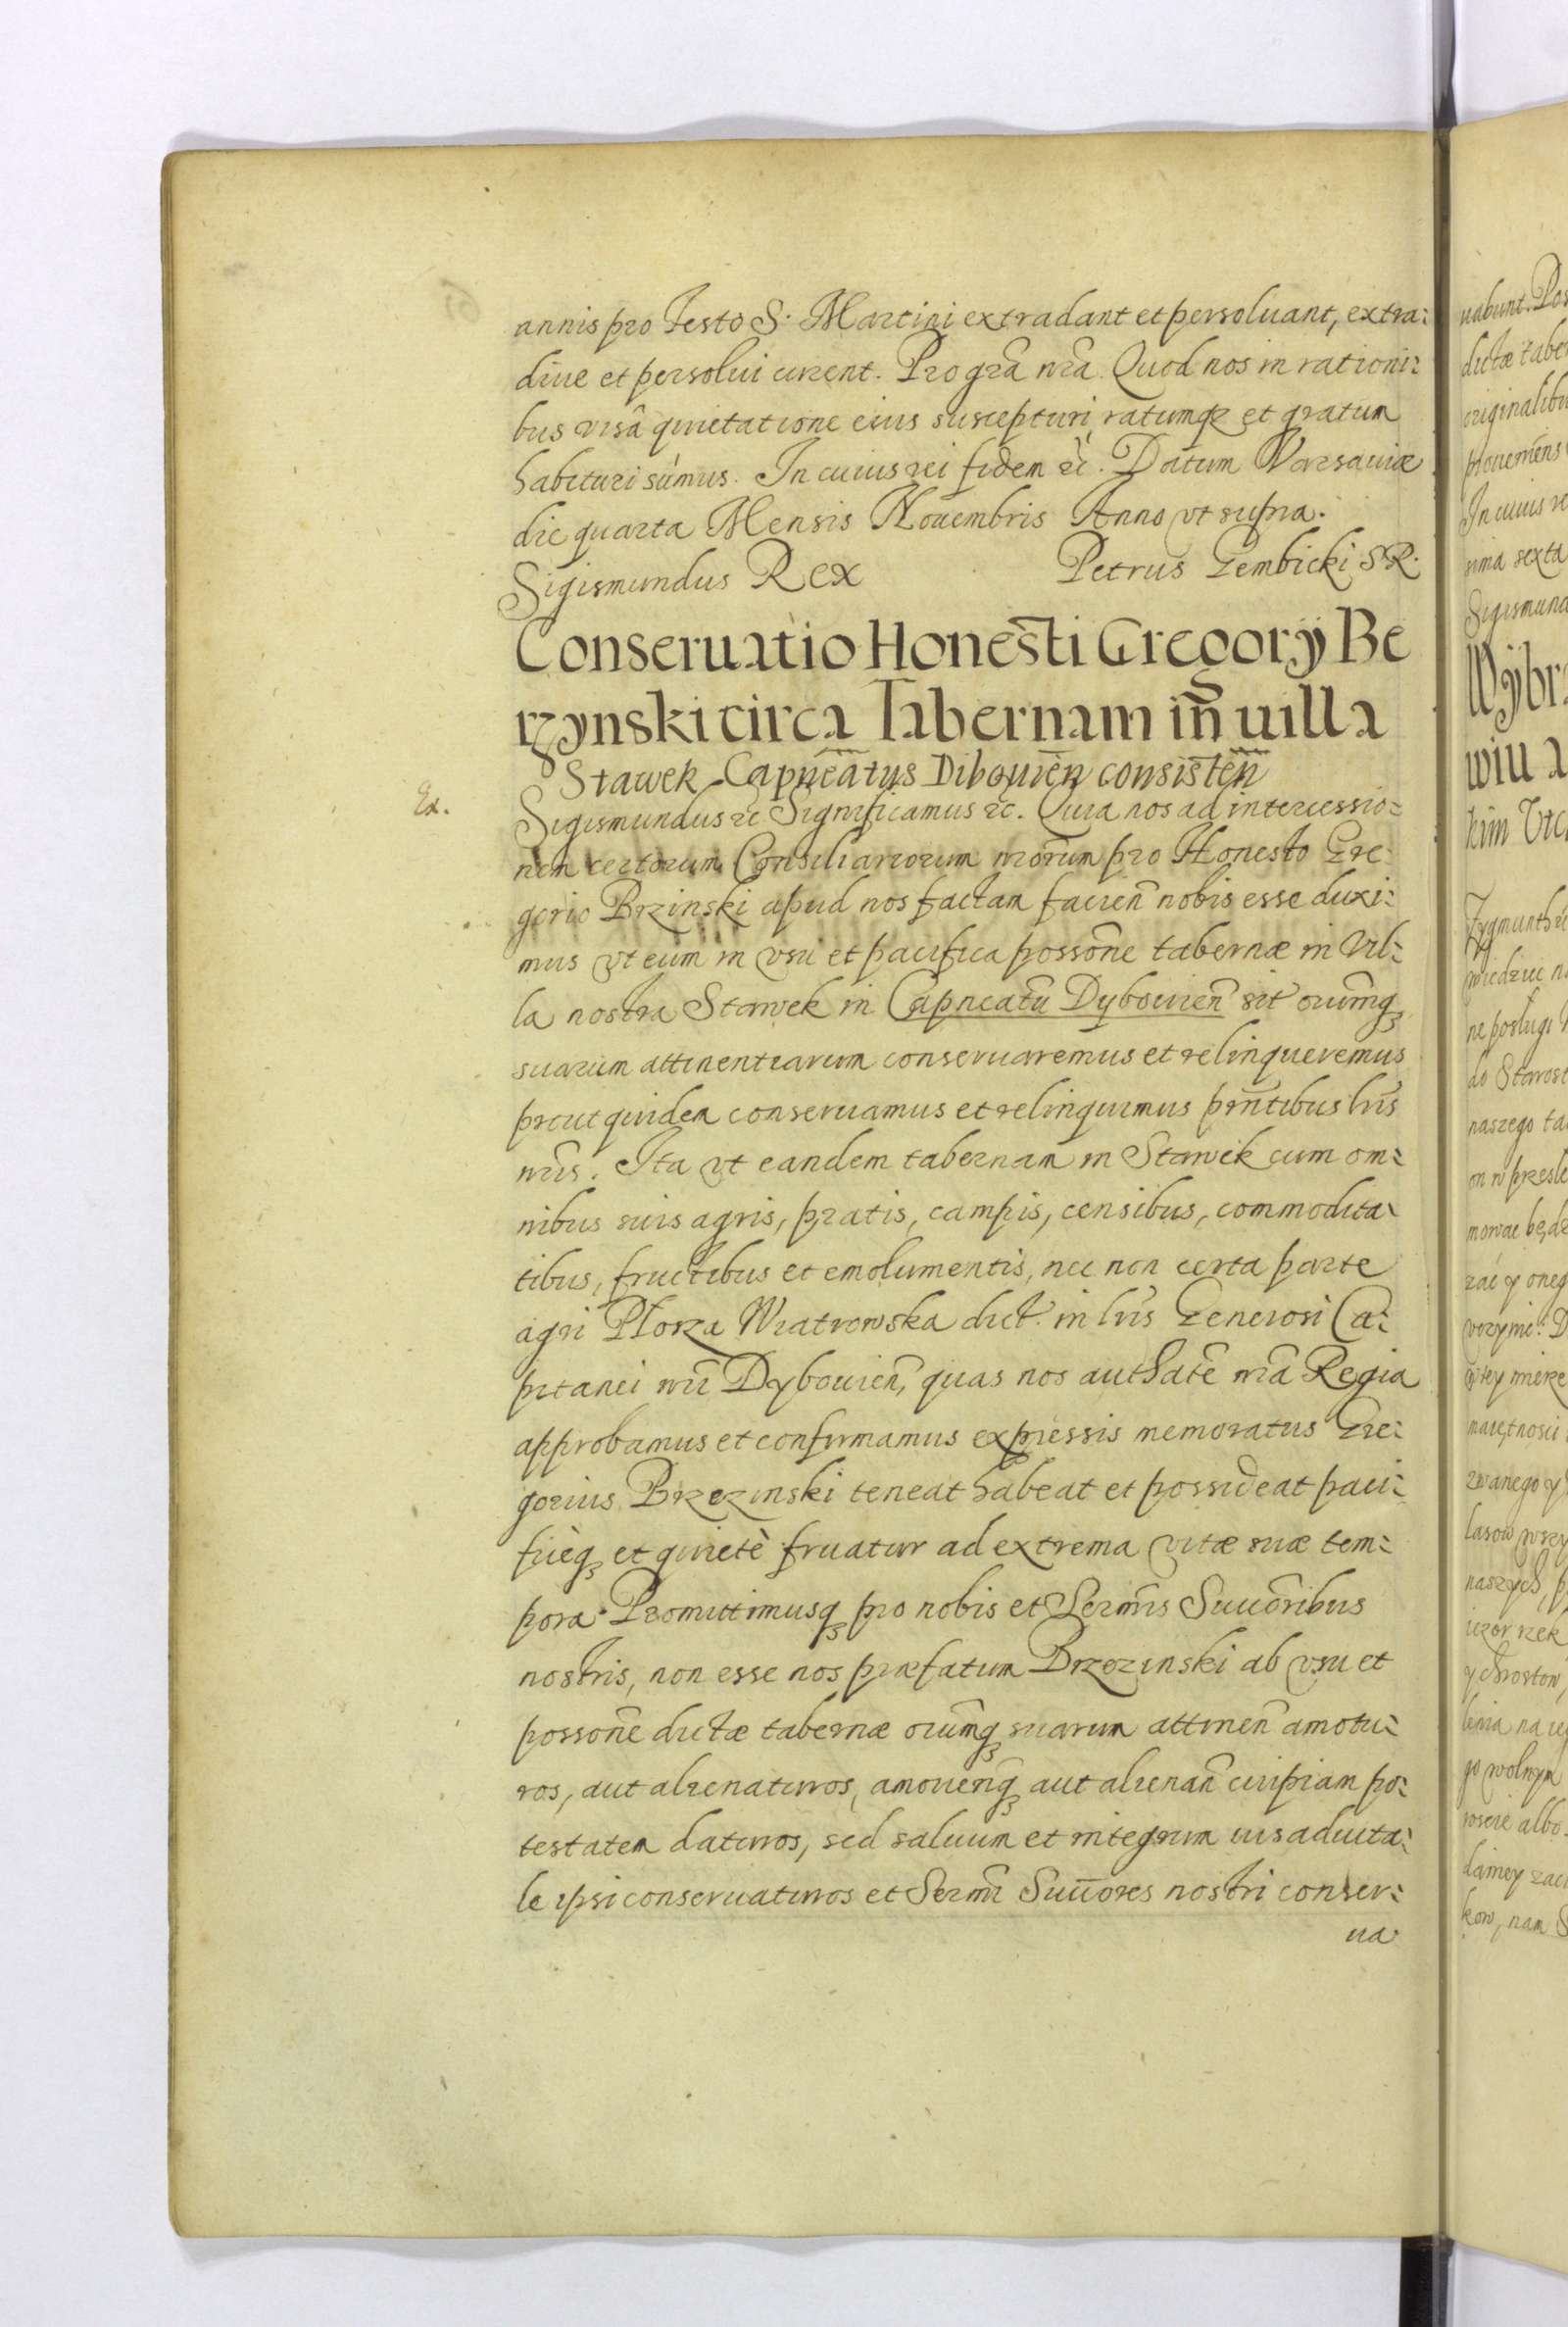 annis pro Festo S. Martini extradant et persoluant, extra:
diue et persolui curent. Pro gr̃a nr̃a. Quod nos in rationi:
bus visâ quietatione eius suscepturi, ratumqꝫ et gratum
habituri sumus. In cuius rei fidem ꝛc̃. Datum Varsauiæ
die quarta Mensis Nouembris Anno vt supra.
Sigismundus Rex Petrus Gembicki SR.
Conseruatio Honesti Gregorÿ Be
rzynski circa Tabernam in uilla
Stawek Capnēatus Dibouien̄ consisten̄
Ex.
Sigismundus ꝛc Significamus ꝛc. Quia nos ad intercessio:
nem certorum Consiliariorum nr̃orum pro Honesto Gre:
gorio Brzinski apud nos factam facien̄ nobis esse duxi:
mus vt eum in vsu et pacifica posson̄e tabernæ in Vil:
la nostra Stawek in Capneatũ Dybouien̄ sit om̃iumqꝫ
suarum attinentiarum conseruaremus et relinqueremus
prout quidem conseruamus et relinquimus prn̄tibus lr̃is
nr̃is. Ita vt eandem tabernam in Stawek cum om:
nibus suis agris, pratis, campis, censibus, commodita:
tibus, fructibus et emolumentis, nec non certa parte
agri Płorza Wiatrowska dict. in lr̃is Generosi Ca:
pitanei nr̃i Dybouien̄, quas nos authat̃e nr̃a Regia
approbamus et confirmamus expressis memoratus Gre:
gorius Brzezinski teneat habeat et possideat paci:
ficèqꝫ et quietè fruatur ad extrema vitæ suæ tem:
pora. Promittimusqꝫ pro nobis et Serm̃is Succõribus
nostris, non esse nos præfatum Brzozinski ab vsu et
posson̄e dictæ tabernæ om̃iumqꝫ suarum attinen̄ amotu:
ros, aut alienaturos, amouen̄qꝫ aut alienan̄ cuipiam po:
testatem daturos, sed saluum et integrum ius aduita:
le ipsi conseruaturos et Serm̃i Succõres nostri conser:
ua